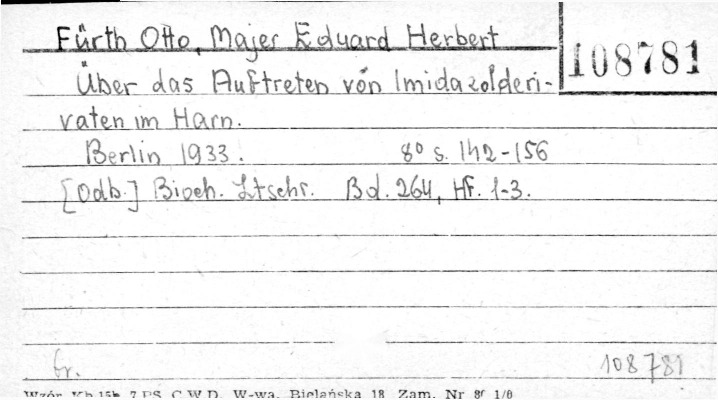 Fürth Otto, Majer Eduard Herbert
108781
Über das Auftreten von Imidazolderi-
vaten im Harn.
Berlin 1933. 8° s. 142-156
[Odb.] Bioch. Ztschr. Bd. 264, Hf. 1-3.
br. 108781
Wzór Kb 15b 7 PS C.W.D. W-wa, Bielańska 18 Zam. Nr